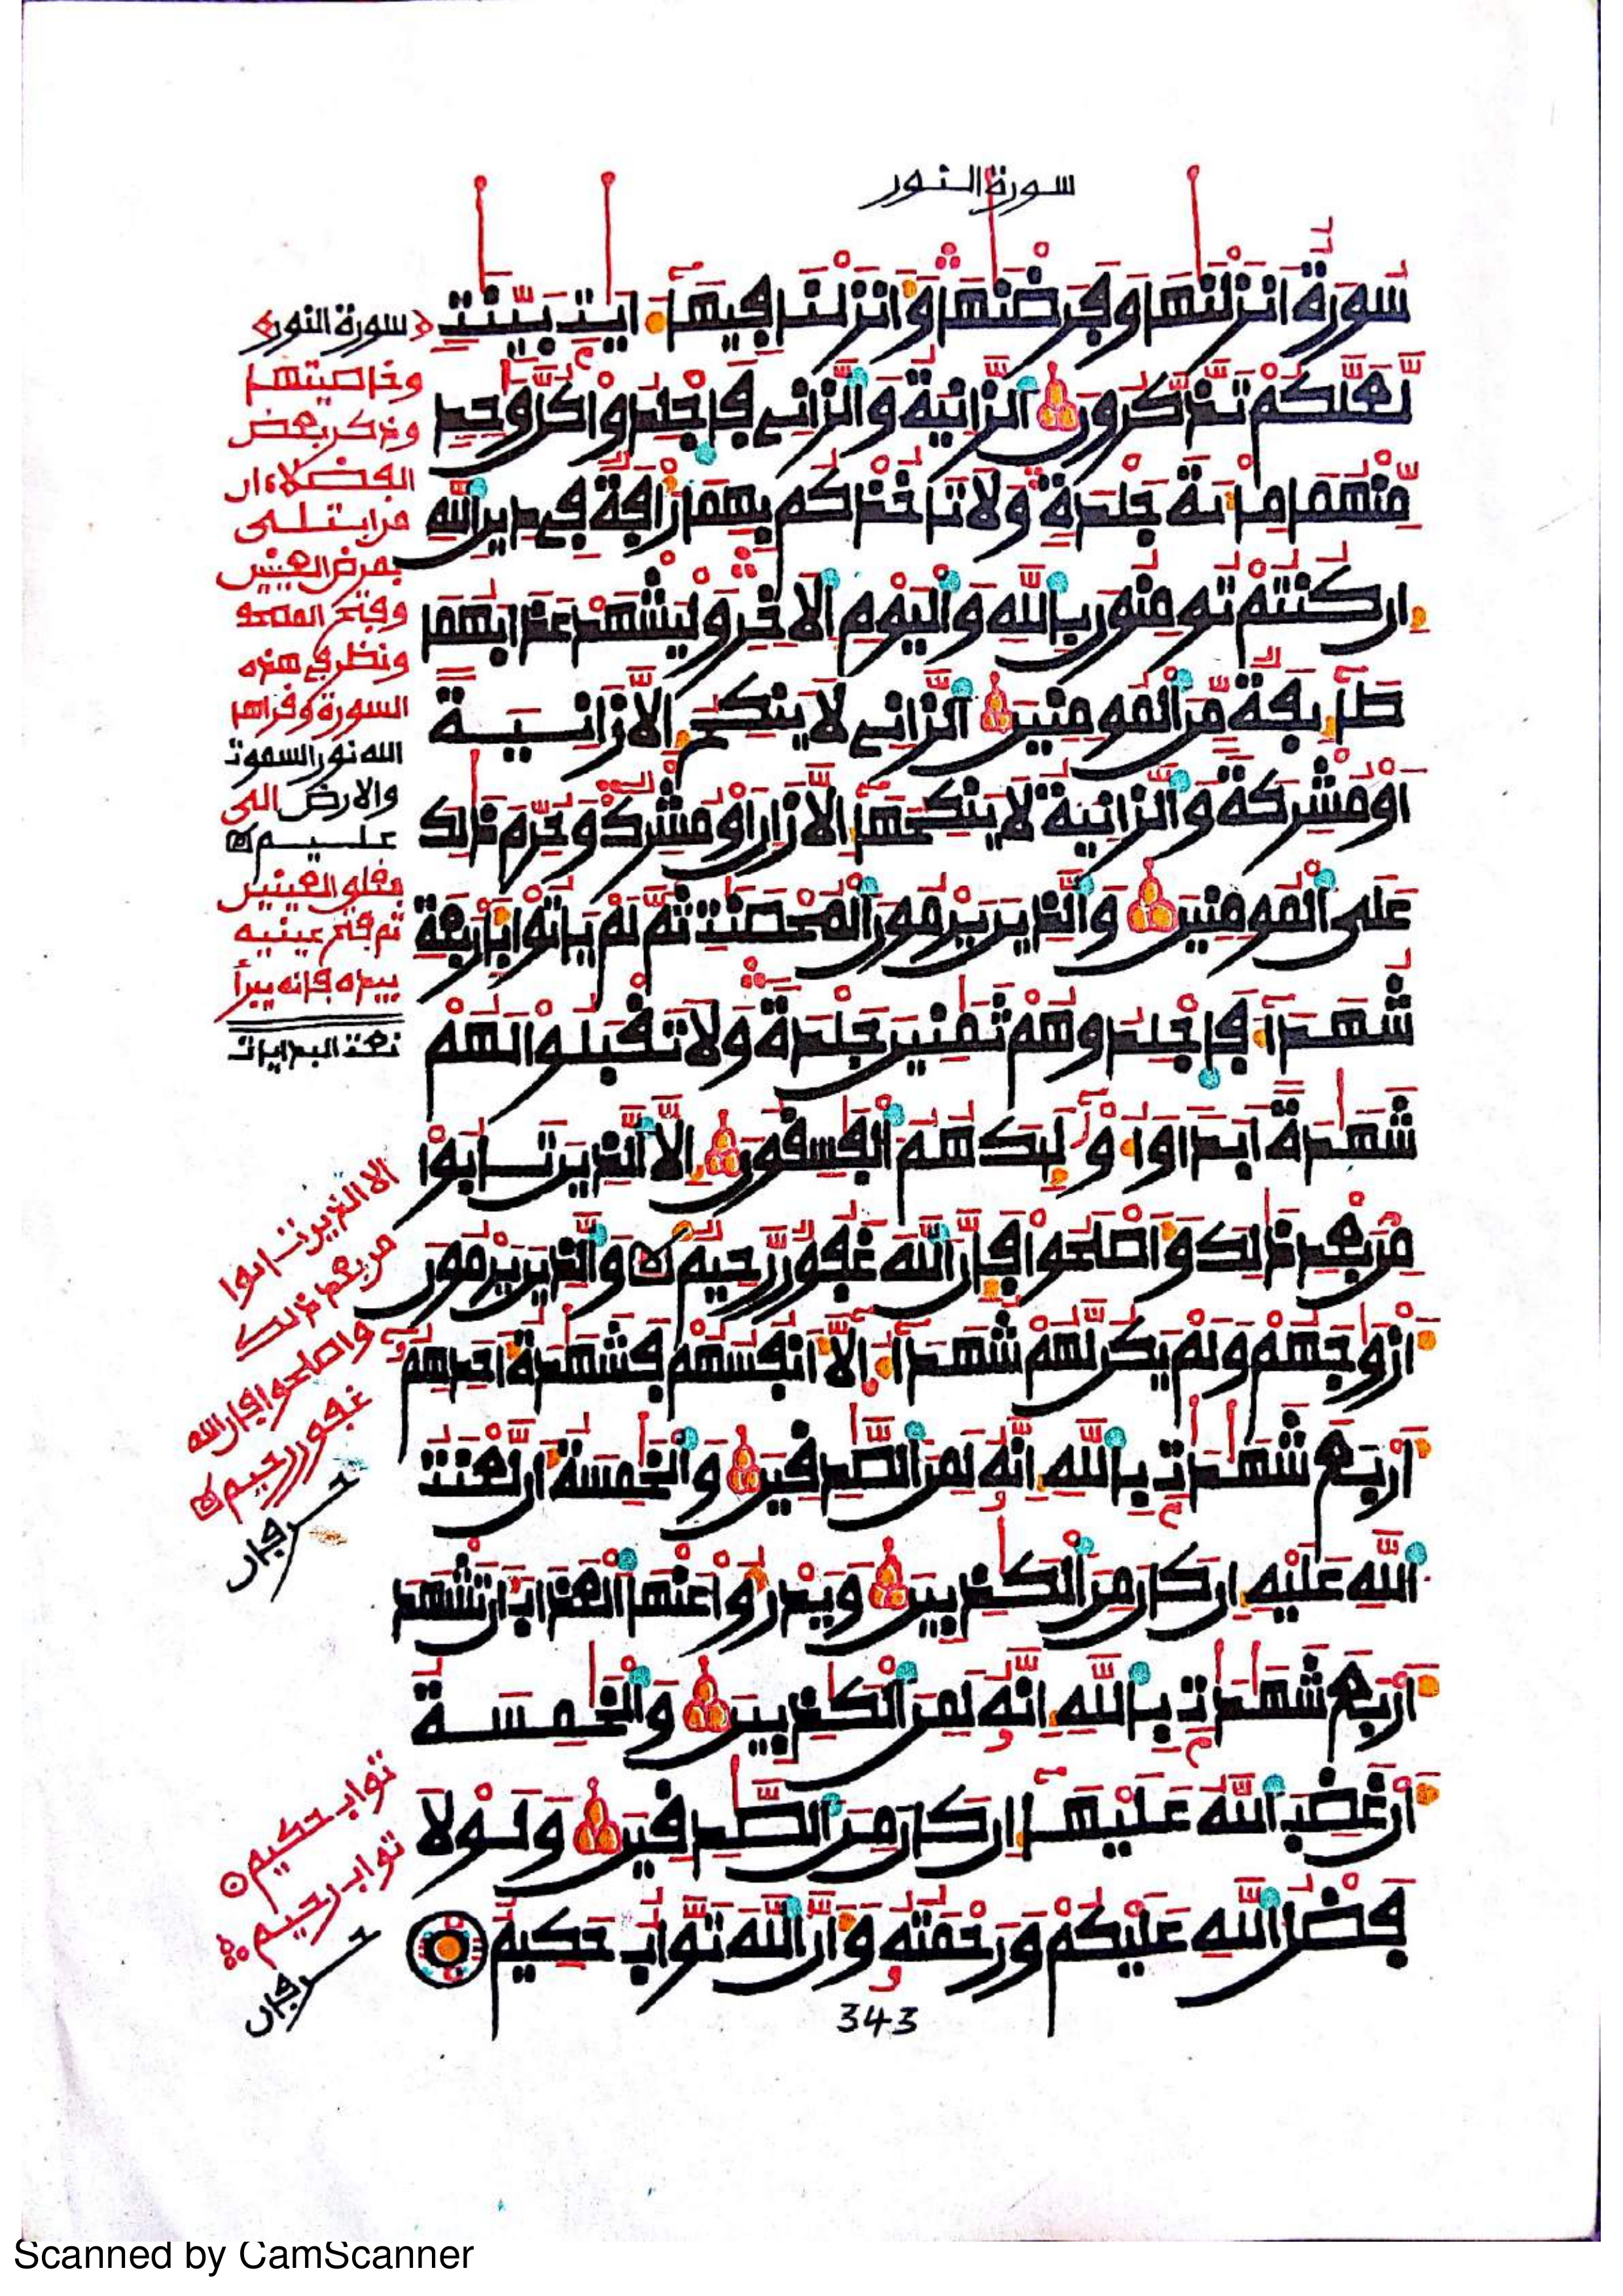 سورة النور
سُورَةٌ اَنزَلْنَٰهَا وَفَرَضْنَٰهَا وَأَنزَلْنَا فِيهَآ ءَايَٰتِۢ بَيِّنَٰتٖ
لَّعَلَّكُمْ تَذَّكَّرُونَ ۝ ٱلزَّانِيَةُ وَٱلزَّانِے فَاجْلِدُواْ كُلَّ وَٰحِدٖ
مِّنْهُمَا مِاْئَةَ جَلْدَةٖ وَلَا تَاخُذْكُم بِهِمَا رَأْفَةٞ فِے دِينِ ٱللَّهِ
إِن كُنتُمْ تُومِنُونَ بِاللَّهِ وَالْيَوْمِ ٱلَاخِرِ وَلْيَشْهَدْ عَذَابَهُمَا
طَآئِفَةٞ مِّنَ ٱلْمُومِنِينَ ۝ ٱلزَّانِے لَا يَنكِحُ إِلَّا زَانِيَةً
اَوْ مُشْرِكَةٗ وَٱلزَّانِيَةُ لَا يَنكِحُهَآ إِلَّا زَانٍ اَوْ مُشْرِكٞ وَحُرِّمَ ذَٰلِكَ
عَلَى ٱلْمُومِنِينَ ۝ وَٱلذِينَ يَرْمُونَ ٱلْمُحْصَنَٰتِ ثُمَّ لَمْ يَاتُواْ بِأَرْبَعَةِ
شُهَدَآءَ فَاجْلِدُوهُمْ ثَمَٰنِينَ جَلْدَةٗ وَلَا تَقْبَلُواْ لَهُمْ
شَهَٰدَةً اَبَدًا وَأُوْلَٰٓئِكَ هُمُ ٱلْفَٰسِقُونَ ۝ إِلَّا ٱلذِينَ تَابُواْ
مِنۢ بَعْدِ ذَٰلِكَ وَأَصْلَحُواْ فَإِنَّ ٱللَّهَ غَفُورٞ رَّحِيمٞ ۝ وَٱلذِينَ يَرْمُونَ
أَزْوَٰجَهُمْ وَلَمْ يَكُن لَّهُمْ شُهَدَآءُ إِلَّآ أَنفُسُهُمْ فَشَهَٰدَةُ أَحَدِهِمُۥٓ
أَرْبَعَ شَهَٰدَٰتِۢ بِاللَّهِ إِنَّهُۥ لَمِنَ ٱلصَّٰدِقِينَ ۝ وَٱلْخَٰمِسَةُ أَن لَّعْنَتُ
ٱللَّهِ عَلَيْهِ إِن كَانَ مِنَ ٱلْكَٰذِبِينَ ۝ وَيَدْرَؤُاْ عَنْهَا ٱلْعَذَابَ أَن تَشْهَدَ
أَرْبَعَ شَهَٰدَٰتِۢ بِاللَّهِ إِنَّهُۥ لَمِنَ ٱلْكَٰذِبِينَ ۝ وَٱلْخَٰمِسَةُ
أَنْ غَضِبَ ٱللَّهُ عَلَيْهَآ إِن كَانَ مِنَ ٱلصَّٰدِقِينَ ۝ وَلَوْلَا
فَضْلُ ٱللَّهِ عَلَيْكُمْ وَرَحْمَتُهُۥ وَأَنَّ ٱللَّهَ تَوَّابٌ حَكِيمٌ
343
سورة النور
وخاصيتها
وذكر بعض
الفضلاء ان
من ابتلى
بمرض العينين
وفتح المصحف
ونظر في هذه
السورة وقراها
الله نور السموت
والارض الى
عليم
مغلو العينين
ثم فتح عينيه
بيده فإنه يبرأ
نعت البدايات
الا الذين تابوا
من بعد ذلك
واصلحوا فإن الله
غفور رحيم
تواب حكيم
تواب رحيم
Scanned by CamScanner